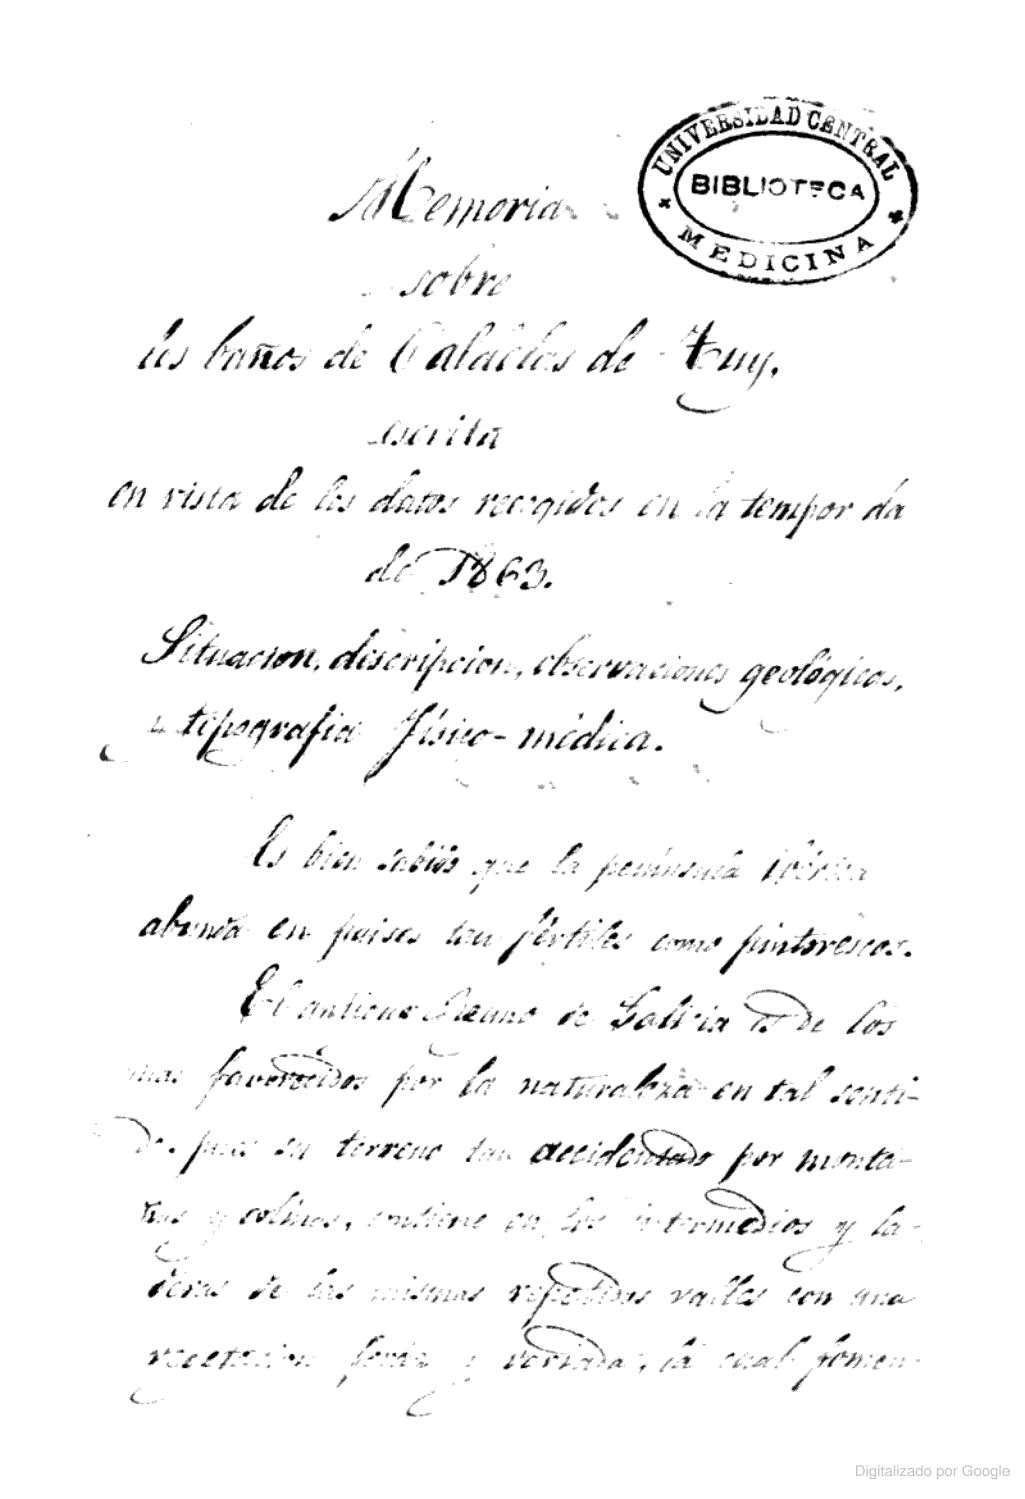 UNIVERSIDAD CENTRAL
BIBLIOTECA
MEDICINA
Memoria
sobre
los baños de Caldelas de Tuy.
escrita
en vista de los datos recogidos en la temporada
de 1863.
Situacion, descripcion, observaciones geológicas,
y topografia físico-médica.
Es bien sabido que la península Ibérica
abunda en paises tan fértiles como pintorescos.
El antiguo Reino de Galicia es de los
mas favorecidos por la naturaleza en tal senti-
do. pues su terreno tan accidentado por monta-
ñas y colinas, contiene en los intermedios y la-
deras de las mismas repetidos valles con una
vegetacion y variada, la cual fomen-
Digitalizado por Google